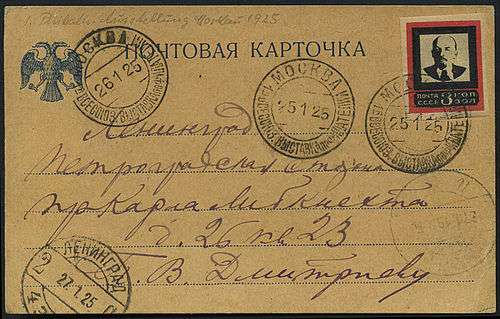 1. Moskau 1925
ПОЧТОВАЯ КАРТОЧКА
МОСКВА
26 1 25
МОСКВА
25 1 25
25 1 25
ПОЧТА 3 КОП
СССР ЗОЛ
Ленинград
Петроградская сторона
пр Карла Либкнехта
д. 26 кв 23
В. Дмитриеву
ЛЕНИНГРАД
27.1.25